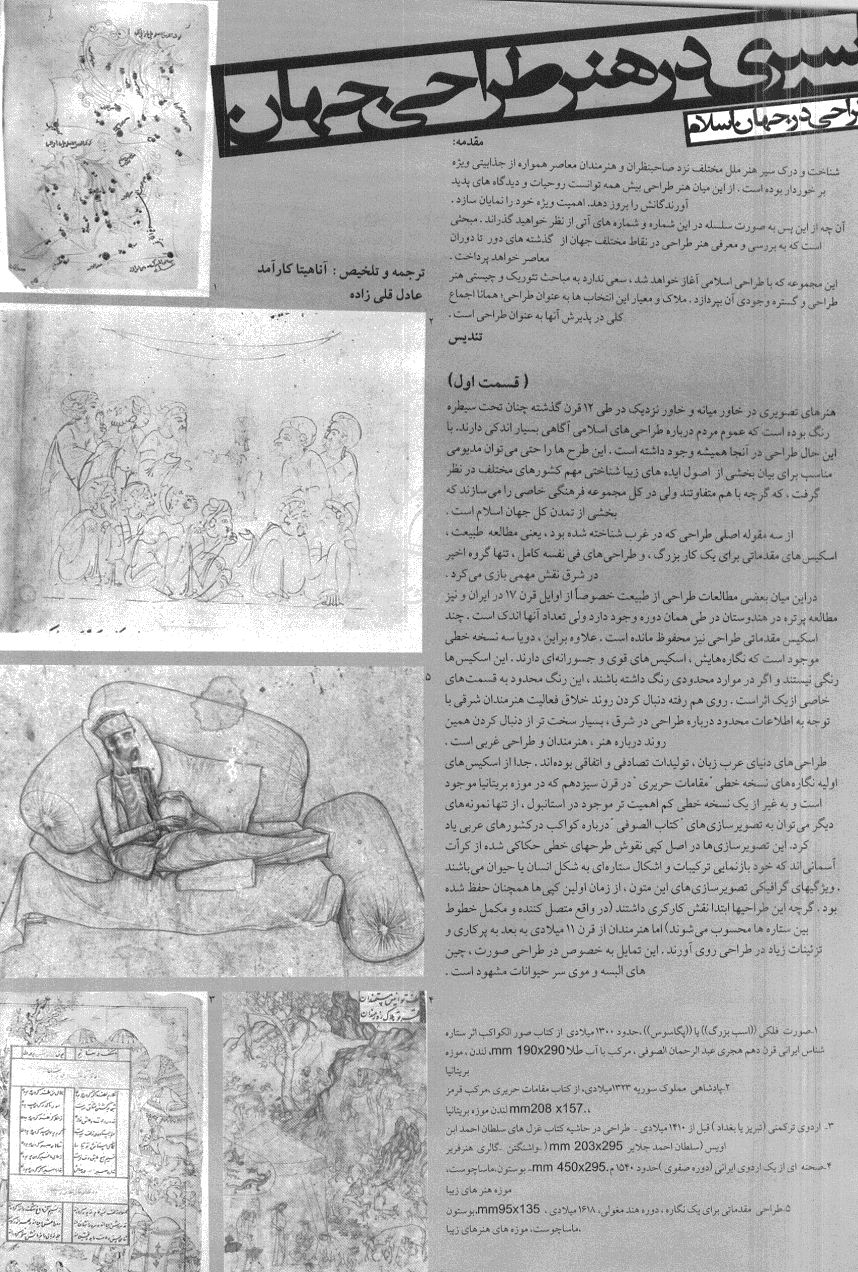 سیری در هنر طراحی جهان
طراحی در جهان اسلام
مقدمه:
شناخت و درک سیر هنر ملل مختلف نزد صاحبنظران و هنرمندان معاصر همواره از جذابیتی ویژه
بر خوردار بوده است . از این میان هنر طراحی بیش همه توانست روحیات و دیدگاه های پدید
آورندگانش را بروز دهد. اهمیت ویژه خود را نمایان سازد .
آن چه از این پس به صورت سلسله در این شماره و شماره های آتی از نظر خواهید گذراند . مبحثی
است که به بررسی و معرفی هنر طراحی در نقاط مختلف جهان از گذشته های دور تا دوران
معاصر خواهد پرداخت .
این مجموعه که با طراحی اسلامی آغاز خواهد شد ، سعی ندارد به مباحث تئوریک و چیستی هنر
طراحی و گستره وجودی آن بپردازد . ملاک و معیار این انتخاب ها به عنوان طراحی؛ همانا اجماع
کلی در پذیرش آنها به عنوان طراحی است .
تندیس
ترجمه و تلخیص : آناهیتا کارآمد
عادل قلی زاده
( قسمت اول)
هنرهای تصویری در خاور میانه و خاور نزدیک در طی ۱۲ قرن گذشته چنان تحت سیطره
رنگ بوده است که عموم مردم درباره طراحی‌های اسلامی آگاهی بسیار اندکی دارند. با
این حال طراحی در آنجا همیشه وجود داشته است . این طرح ها را حتی می‌توان مدیومی
مناسب برای بیان بخشی از اصول ایده های زیبا شناختی مهم کشورهای مختلف در نظر
گرفت ، که گرچه با هم متفاوتند ولی در کل مجموعه فرهنگی خاصی را می‌سازند که
بخشی از تمدن کل جهان اسلام است .
از سه مقوله اصلی طراحی که در غرب شناخته شده بود ، یعنی مطالعه طبیعت ،
اسکیس‌های مقدماتی برای یک کار بزرگ ، و طراحی‌های فی نفسه کامل ، تنها گروه اخیر
در شرق نقش مهمی بازی می‌کرد .
دراین میان بعضی مطالعات طراحی از طبیعت خصوصاً از اوایل قرن ۱۷ در ایران و نیز
مطالعه پرتره در هندوستان در طی همان دوره وجود دارد ولی تعداد آنها اندک است . چند
اسکیس مقدماتی طراحی نیز محفوظ مانده است . علاوه براین ، دویا سه نسخه خطی
موجود است که نگاره‌هایش ، اسکیس‌های قوی و جسورانه‌ای دارند. این اسکیس‌ها
رنگی نیستند و اگر در موارد محدودی رنگ داشته باشند ، این رنگ محدود به قسمت‌های
خاصی ازیک اثر است . روی هم رفته دنبال کردن روند خلاق فعالیت هنرمندان شرقی با
توجه به اطلاعات محدود درباره طراحی در شرق ، بسیار سخت تر از دنبال کردن همین
روند درباره هنر ، هنرمندان و طراحی غربی است .
طراحی‌های دنیای عرب زبان ، تولیدات تصادفی و اتفاقی بوده‌اند . جدا از اسکیس‌های
اولیه نگاره‌های نسخه خطی "مقامات حریری "در قرن سیزدهم که در موزه بریتانیا موجود
است و به غیر از یک نسخه خطی کم اهمیت تر موجود در استانبول ، از تنها نمونه‌های
دیگر می‌توان به تصویرسازی‌های "کتاب الصوفی "درباره کواکب درکشورهای عربی یاد
کرد. این تصویرسازی‌ها در اصل کپی نقوش طرحهای خطی حکاکی شده از کرآت
آسمانی‌اند که خود بازنمایی ترکیبات و اشکال ستاره‌ای به شکل انسان یا حیوان می‌باشند
. ویژگیهای گرافیکی تصویرسازی‌های این متون ، از زمان اولین کپی‌ها همچنان حفظ شده
بود . گرچه این طراحیها ابتدا نقش کارکری داشتند (در واقع متصل کننده و مکمل خطوط
بین ستاره ها محسوب می‌شوند) اما هنرمندان از قرن ۱۱ میلادی به بعد به پرکاری و
تزئینات زیاد در طراحی روی آورند . این تمایل به خصوص در طراحی صورت ، چین
های البسه و موی سر حیوانات مشهود است .
۱-صورت فلکی ((اسب بزرگ)) یا ((پگاسوس)) ،حدود ۱۳۰۰ میلادی از کتاب صور الکواکب اثر ستاره
شناس ایرانی قرن دهم هجری عبد الرحمان الصوفی ، مرکب با آب طلا mm 190x290، لندن ، موزه
بریتانیا
۲-پادشاهی مملوک سوریه ۱۳۲۳میلادی، از کتاب مقامات حریری ،مرکب قرمز
،،mm208 x157 لندن موزه بریتانیا
۳- اردوی ترکمنی (تبریز یا بغداد ) قبل از ۱۴۱۰ میلادی - طراحی در حاشیه کتاب غزل های سلطان احمد ابن
اویس (سلطان احمد جلایر mm 203x295 ) -واشنگتن -گالری هنرفریر
۴-صحنه ای از یک اردوی ایرانی (دوره صفوی )حدود ۱۵۴۰ م.mm 450x295- بوستون،ماساچوست،
موزه هنر های زیبا
۵-طراحی مقدماتی برای یک نگاره ، دوره هند مغولی، ۱۶۱۸ میلادی ، mm95x135،بوستون
،ماساچوست، موزه های هنرهای زیبا
۱
۲
۵
۳
۴